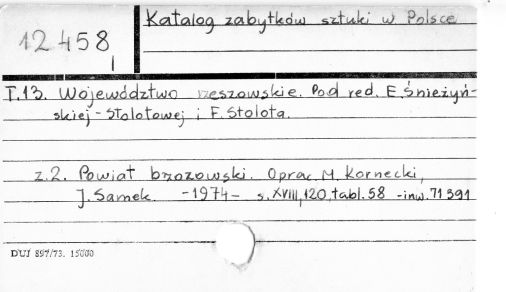 Katalog zabytków sztuki w Polsce
12458
I
T.13. Województwo rzeszowskie. Pod red. E. Śnieżyń-
skiej-Stolotowej i F. Stolota.
z.2. Powiat brzozowski. Oprac. M. Kornecki,
J. Samek. -1974- s. XVIII, 120, tabl. 58 -inw. 71391
DUJ 897/73. 15000